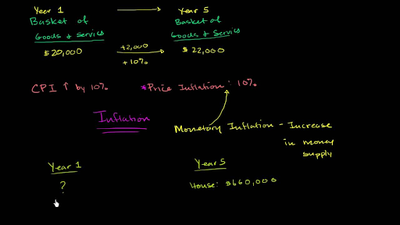 Year 1
Year 5
Basket of
Goods & Service
$20,000
+2,000
+10%
Basket of
Goods & Service
$22,000
CPI ↑ by 10%
*Price Inflation: 10%
Inflation
Monetary Inflation - Increase
in money
supply
Year 1
?
Year 5
House: $660,000